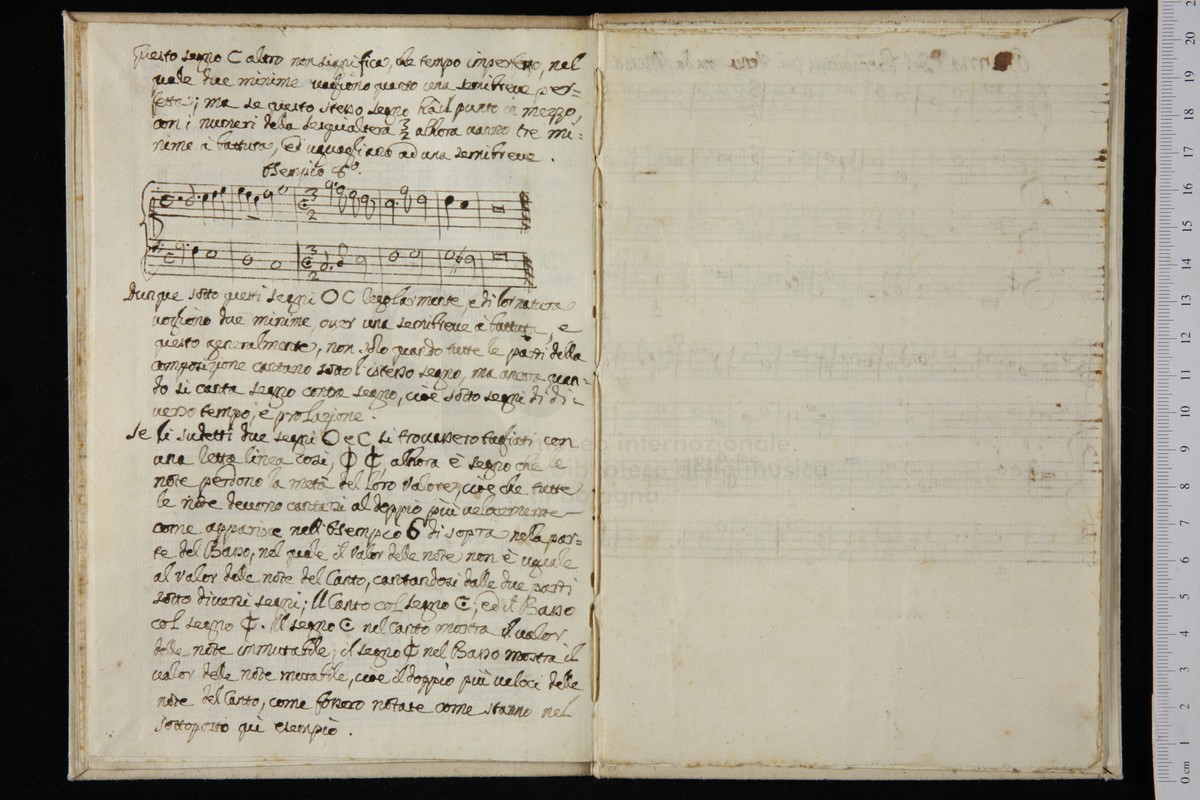 Questo segno C altro non significa, che tempo imperfetto, nel
quale due minime vagliono quanto una semibreve per=
fetta; ma se questo stesso segno hà il punto in mezzo,
con i numeri della sesquialtera 3/2 allhora vanno tre mi=
nime à battuta, ed uguagliano ad una semibreve.
Esempio 8º.
3
2
3
2
Dunque sotto questi segni O C regolarmente, e di lor natura
vogliono due minime, over una semibreve à battuta, e
questo generalmente, non solo quando tutte le parti della
composizione cantano sotto l'istesso segno, ma ancora quan=
do si canta segno contra segno, cioè sotto segni di di=
verso tempo, e prolazione.
Se li sudetti due segni O e C si trovassero tagliati con
una retta linea così, ⌽ ₵, allhora è segno che le
note perdono la metà del loro valore, cioè che tutte
le note devono cantarsi al doppio più velocemente
come apparisce nell'Esempio 6 di sopra nella par=
te del Basso, nel quale il valor delle note non è uguale
al valor delle note del Canto, cantandosi dalle due parti
sotto diversi segni; Il Canto col segno C, ed il Basso
col segno ₵. Il segno C nel Canto mostra il valor
delle note immutabile; il segno ₵ nel Basso mostra il
valor delle note mutabile, cioè il doppio più veloci delle
note del Canto, come fossero notate come stanno nel
sottoposto quì esempio.
museo internazionale
biblioteca della musica
di bologna
0 cm 1 2 3 4 5 6 7 8 9 10 11 12 13 14 15 16 17 18 19 20